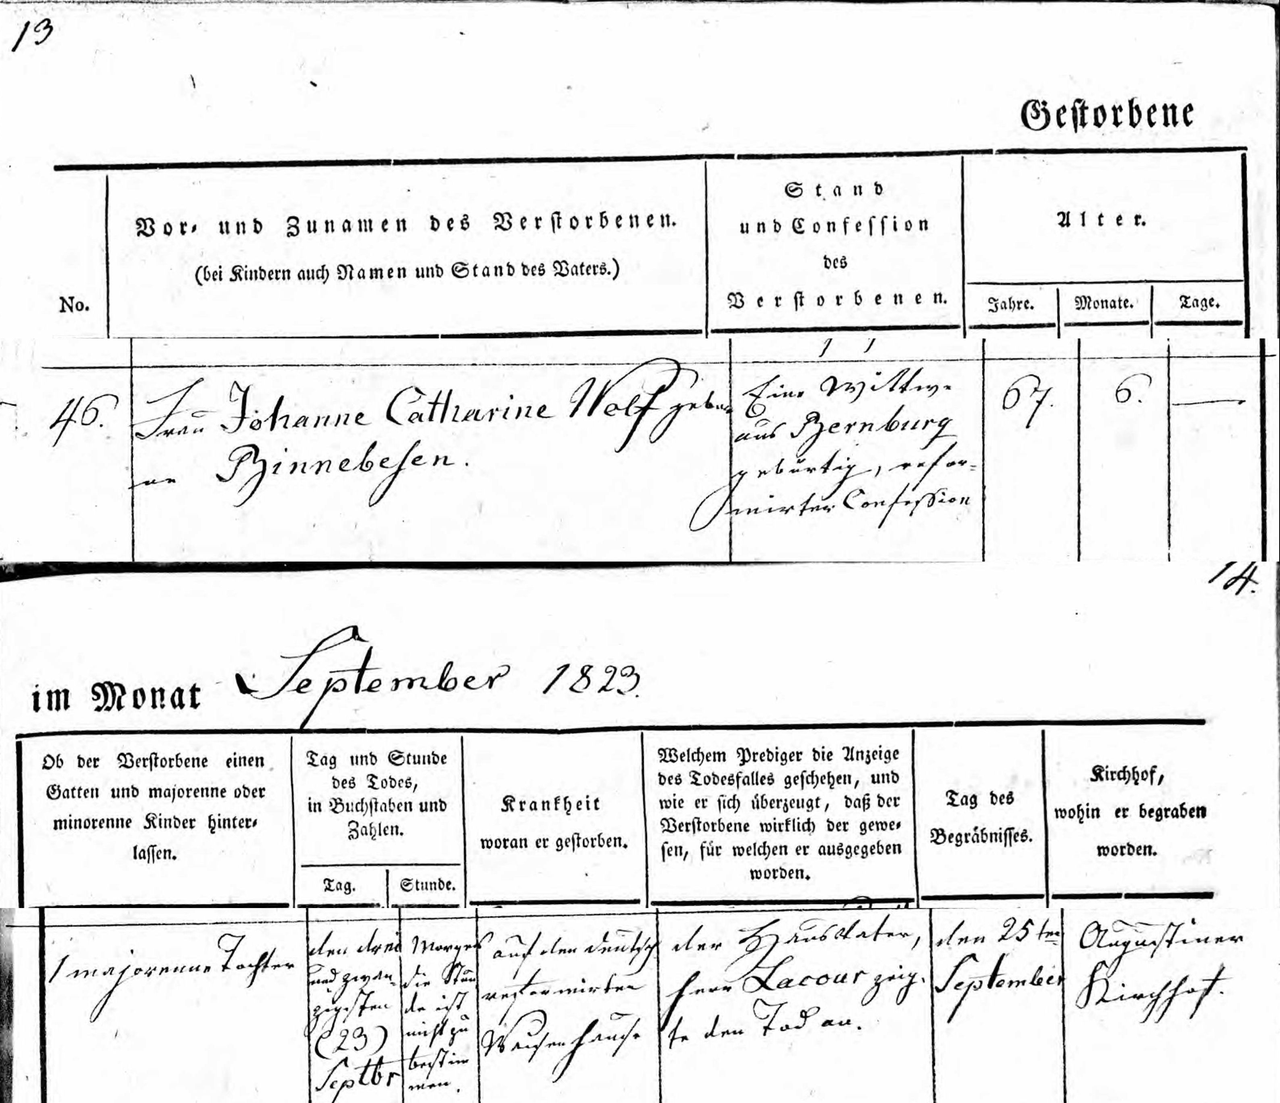 13
Gestorbene
No.
Vor- und Zunamen des Verstorbenen.
(bei Kindern auch Namen und Stand des Vaters.)
Stand
und Confession
des
Verstorbenen.
Alter.
Jahre.
Monate.
Tage.
46.
Frau Johanne Catharine Wolf gebor-
ne Binnebesen.
Eine Wittwe
aus Bernburg
gebürtig, refor-
mirter Confession
67.
6.
—
14.
im Monat September 1823.
Ob der Verstorbene einen
Gatten und majorenne oder
minorenne Kinder hinter-
lassen.
Tag und Stunde
des Todes,
in Buchstaben und
Zahlen.
Tag.
Stunde.
Krankheit
woran er gestorben.
Welchem Prediger die Anzeige
des Todesfalles geschehen, und
wie er sich überzeugt, daß der
Verstorbene wirklich der gewe-
sen, für welchen er ausgegeben
worden.
Tag des
Begräbnisses.
Kirchhof,
wohin er begraben
worden.
1 majorenne Tochter
den drei
und zwan-
zigsten
(23)
Septbr
Morgens
die Stun
de ist
nicht zu
bestim
men.
auf dem deutsch
reformirten
Waisenhause
der Hausvater,
Herr Lacour zeig-
te den Tod an.
den 25ten
September
Augustiner
Kirchhof.